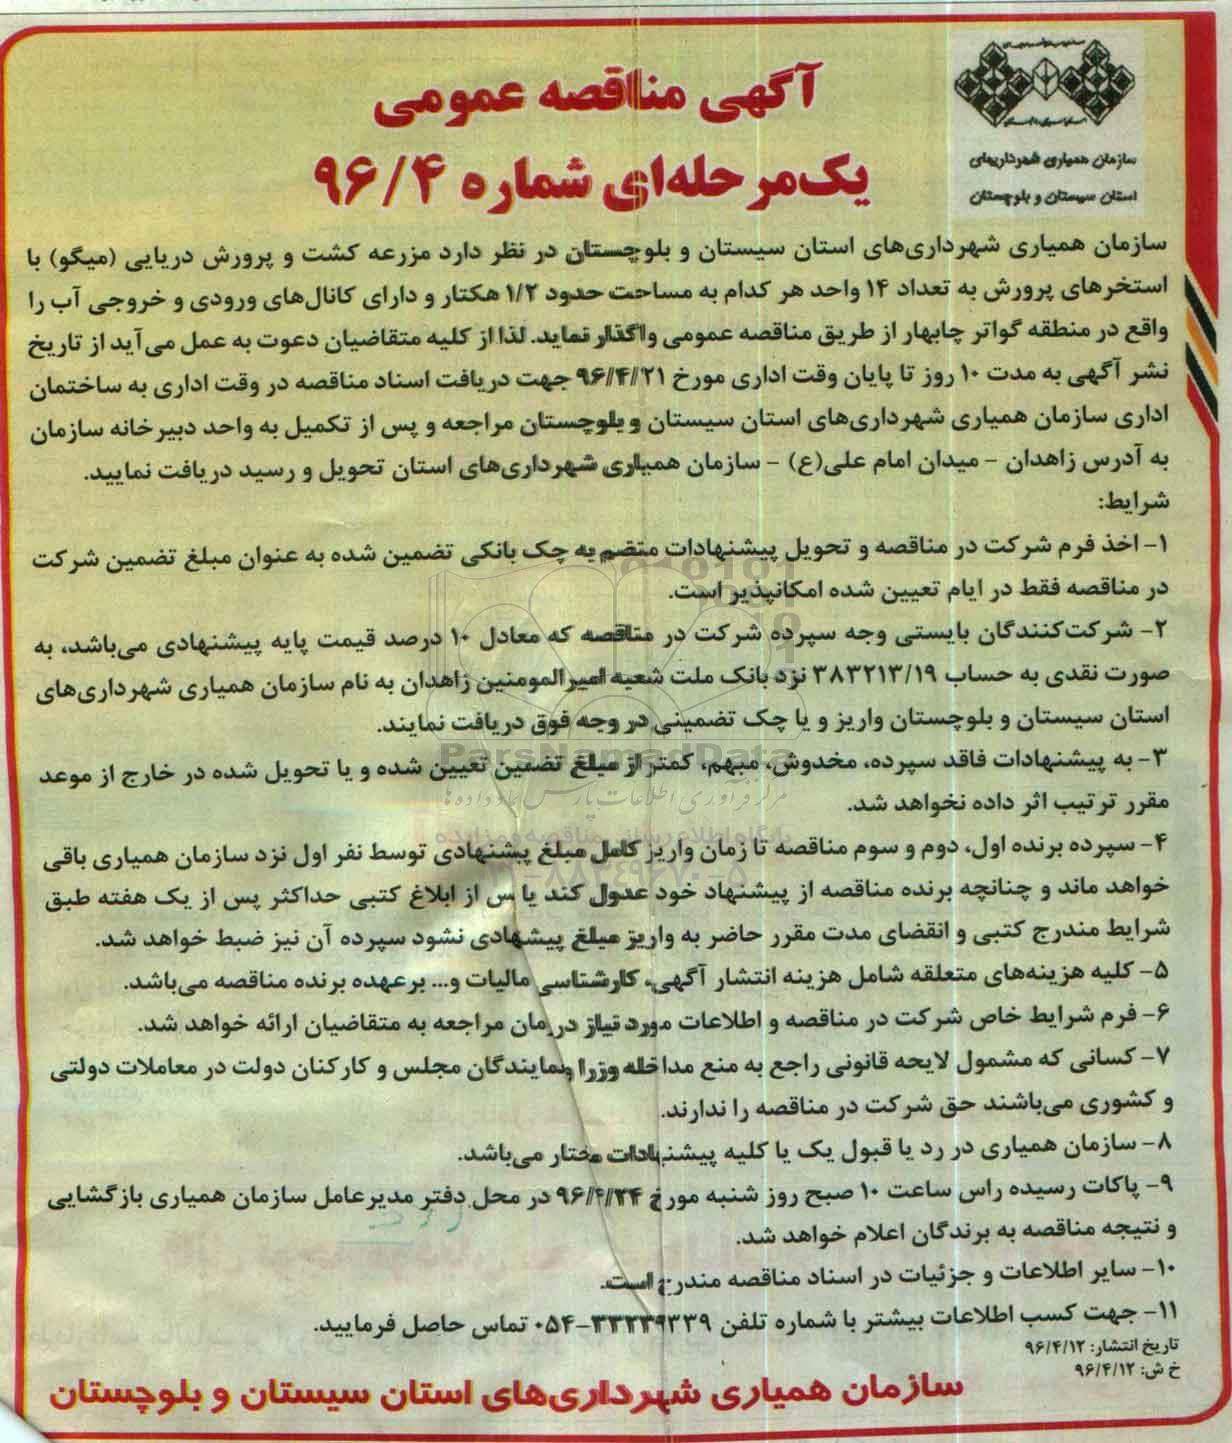 سازمان همیاری شهرداریهای
استان سیستان و بلوچستان
آگهی مناقصه عمومی
یک‌مرحله‌ای شماره ۹۶/۴
سازمان همیاری شهرداری‌های استان سیستان و بلوچستان در نظر دارد مزرعه کشت و پرورش دریایی (میگو) با
استخرهای پرورش به تعداد ۱۴ واحد هر کدام به مساحت حدود ۱/۲ هکتار و دارای کانال‌های ورودی و خروجی آب را
واقع در منطقه گواتر چابهار از طریق مناقصه عمومی واگذار نماید. لذا از کلیه متقاضیان دعوت به عمل می‌آید از تاریخ
نشر آگهی به مدت ۱۰ روز تا پایان وقت اداری مورخ ۹۶/۴/۲۱ جهت دریافت اسناد مناقصه در وقت اداری به ساختمان
اداری سازمان همیاری شهرداری‌های استان سیستان و بلوچستان مراجعه و پس از تکمیل به واحد دبیرخانه سازمان
به آدرس زاهدان - میدان امام علی(ع) - سازمان همیاری شهرداری‌های استان تحویل و رسید دریافت نمایید.
شرایط:
۱- اخذ فرم شرکت در مناقصه و تحویل پیشنهادات متضم به چک بانکی تضمین شده به عنوان مبلغ تضمین شرکت
در مناقصه فقط در ایام تعیین شده امکانپذیر است.
۲- شرکت‌کنندگان بایستی وجه سپرده شرکت در مناقصه که معادل ۱۰ درصد قیمت پایه پیشنهادی می‌باشد، به
صورت نقدی به حساب ۳۸۳۲۱۳/۱۹ نزد بانک ملت شعبه امیرالمومنین زاهدان به نام سازمان همیاری شهرداری‌های
استان سیستان و بلوچستان واریز و یا چک تضمینی در وجه فوق دریافت نمایند.
۳- به پیشنهادات فاقد سپرده، مخدوش، مبهم، کمتر از مبلغ تضمین تعیین شده و یا تحویل شده در خارج از موعد
مقرر ترتیب اثر داده نخواهد شد.
۴- سپرده برنده اول، دوم و سوم مناقصه تا زمان واریز کامل مبلغ پیشنهادی توسط نفر اول نزد سازمان همیاری باقی
خواهد ماند و چنانچه برنده مناقصه از پیشنهاد خود عدول کند یا پس از ابلاغ کتبی حداکثر پس از یک هفته طبق
شرایط مندرج کتبی و انقضای مدت مقرر حاضر به واریز مبلغ پیشهادی نشود سپرده آن نیز ضبط خواهد شد.
۵- کلیه هزینه‌های متعلقه شامل هزینه انتشار آگهی، کارشناسی مالیات و... برعهده برنده مناقصه می‌باشد.
۶- فرم شرایط خاص شرکت در مناقصه و اطلاعات مورد نیاز در زمان مراجعه به متقاضیان ارائه خواهد شد.
۷- کسانی که مشمول لایحه قانونی راجع به منع مداخله وزرا و نمایندگان مجلس و کارکنان دولت در معاملات دولتی
و کشوری می‌باشند حق شرکت در مناقصه را ندارند.
۸- سازمان همیاری در رد یا قبول یک یا کلیه پیشنهادات مختار می‌باشد.
۹- پاکات رسیده راس ساعت ۱۰ صبح روز شنبه مورخ ۹۶/۴/۲۴ در محل دفتر مدیرعامل سازمان همیاری بازگشایی
و نتیجه مناقصه به برندگان اعلام خواهد شد.
۱۰- سایر اطلاعات و جزئیات در اسناد مناقصه مندرج است.
۱۱- جهت کسب اطلاعات بیشتر با شماره تلفن ۳۳۲۳۹۳۳۹-۰۵۴ تماس حاصل فرمایید.
تاریخ انتشار: ۹۶/۴/۱۲
خ ش: ۹۶/۴/۱۲
سازمان همیاری شهرداری‌های استان سیستان و بلوچستان
ParsNamadData
مرکز فرآوری اطلاعات پارس نماد داده ها
پایگاه اطلاع رسانی مناقصه و مزایده